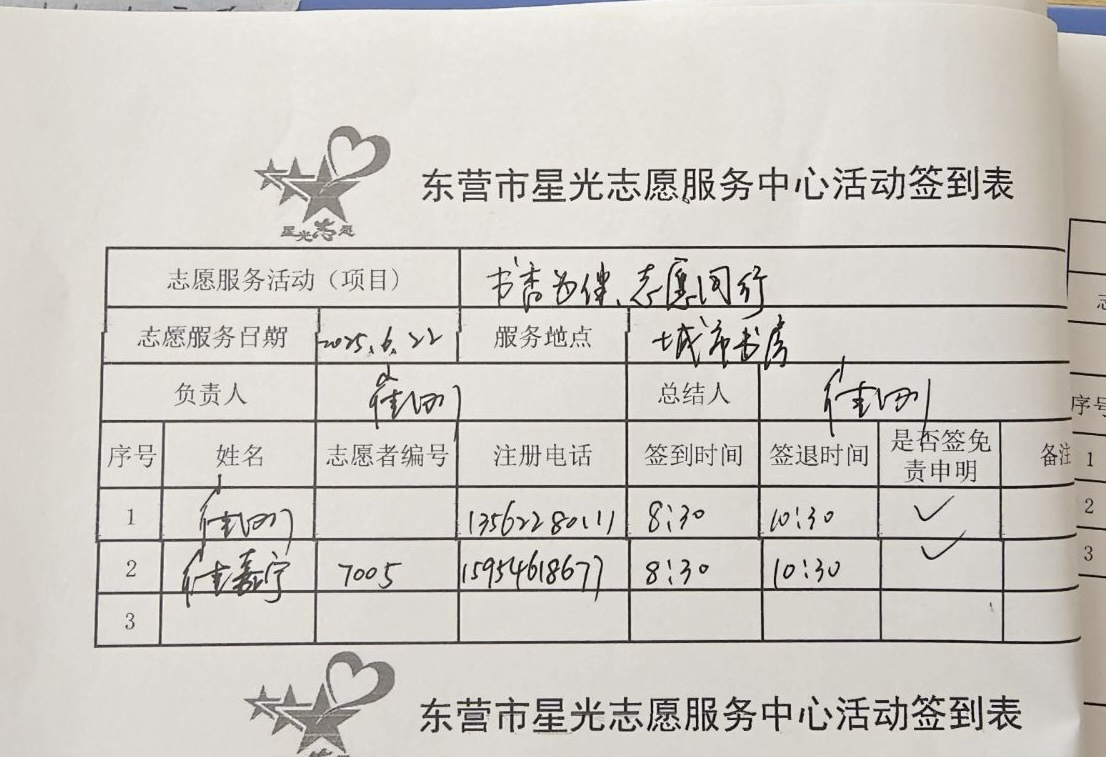 星光志愿
东营市星光志愿服务中心活动签到表
志愿服务活动（项目） 书香为伴、志愿同行
志愿服务日期 2025.6.22 服务地点 城市书房
负责人 崔 总结人 崔
序号 姓名 志愿者编号 注册电话 签到时间 签退时间 是否签免责申明 备注
1 崔 13562280111 8:30 10:30 ✓
2 崔嘉宁 7005 15954618677 8:30 10:30 ✓
3
东营市星光志愿服务中心活动签到表
序号
1
2
3